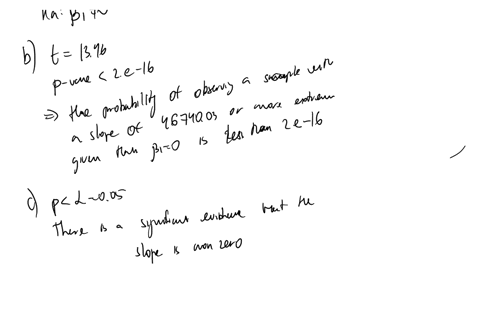 Ha: β₁
b) t = 13.96
p-value < 2e-16
⇒ the probability of observing a sample with
a slope of 46740.03 or more extreme
given that β₁=0 is less than 2e-16
c) p < α = 0.05
There is a significant evidence that the
slope is non zero